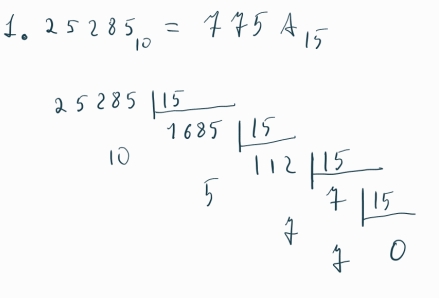 1. 25285₁₀ = 775A₁₅
25285 |15
1685 |15
10 112 |15
5 7 |15
7
7 0